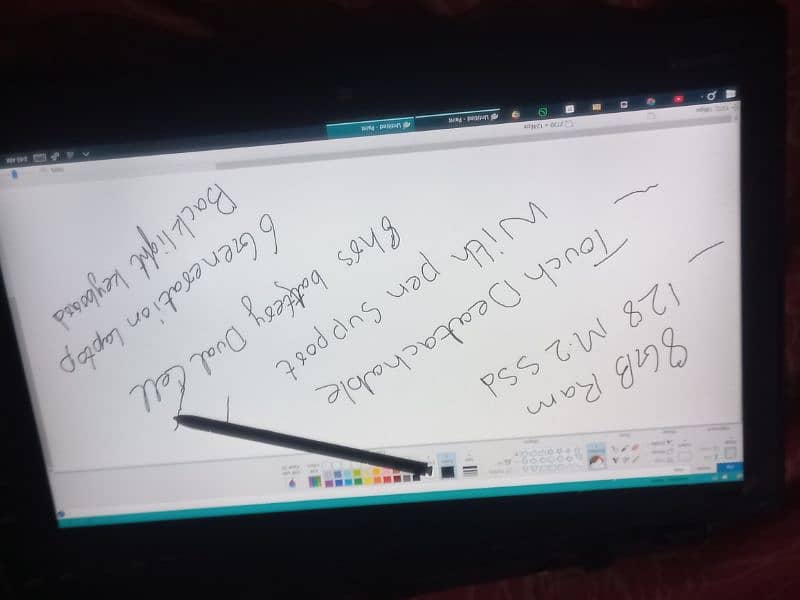 8GB Ram
128 M.2 SSd
Touch Deatachable
With pen support
8hos battery Dual Cell
6 Generation laptop
Backlight keyboard
Untitled - Paint
Untitled - Paint